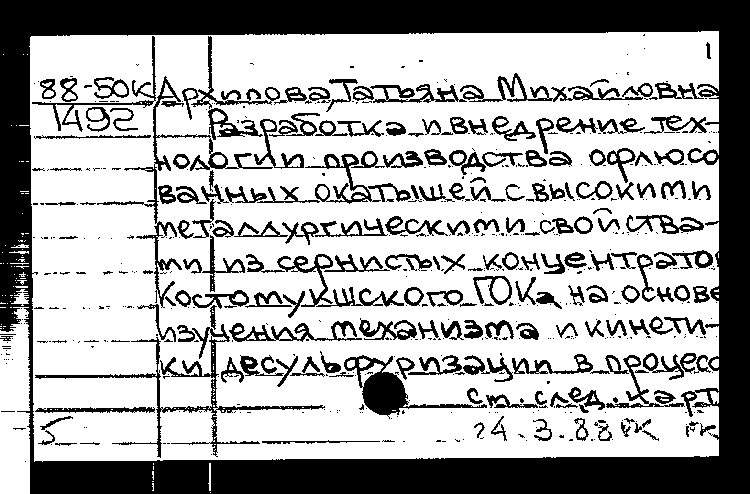 1
88-50к Архипова, Татьяна Михайловна
1492 Разработка и внедрение тех-
нологии производства офлюсо
ванных окатышей с высокими
металлургическими свойства-
ми из сернистых концентратов
Костомукшского ГОКа на основе
изучения механизма и кинети-
ки десульфуризации в процесс
см. след. карт
5 24.3.88